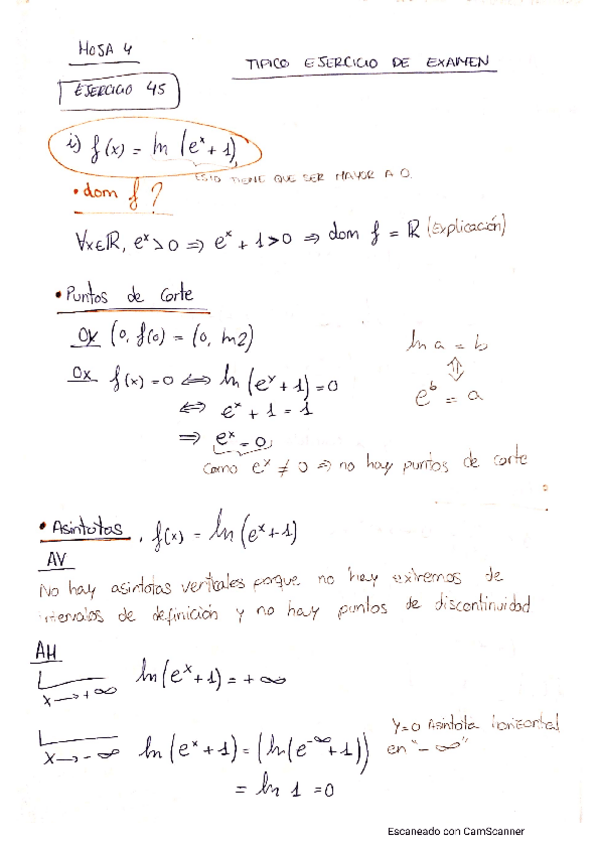 HOJA 4
TIPICO EJERCICIO DE EXAMEN
EJERCICIO 45
i) f(x) = ln (eˣ + 1)
ESTO TIENE QUE SER MAYOR A 0.
• dom f ?
∀x∈ℝ, eˣ > 0 ⇒ eˣ + 1 > 0 ⇒ dom f = ℝ (Explicación)
• Puntos de corte
OX (0, f(0) = (0, ln2)
OX f(x) = 0 ⟺ ln (eˣ + 1) = 0
⟺ eˣ + 1 = 1
⇒ eˣ = 0
Como eˣ ≠ 0 ⇒ no hay puntos de corte
ln a = b
⇕
eᵇ = a
• Asintotas, f(x) = ln (eˣ + 1)
AV
No hay asintotas verticales porque no hay extremos de
intervalos de definición y no hay puntos de discontinuidad
AH
L x→+∞ ln (eˣ + 1) = +∞
L x→-∞ ln (eˣ + 1) = (ln (e^-∞ + 1))
= ln 1 = 0
Y=0 Asintota horizontal
en "-∞"
Escaneado con CamScanner